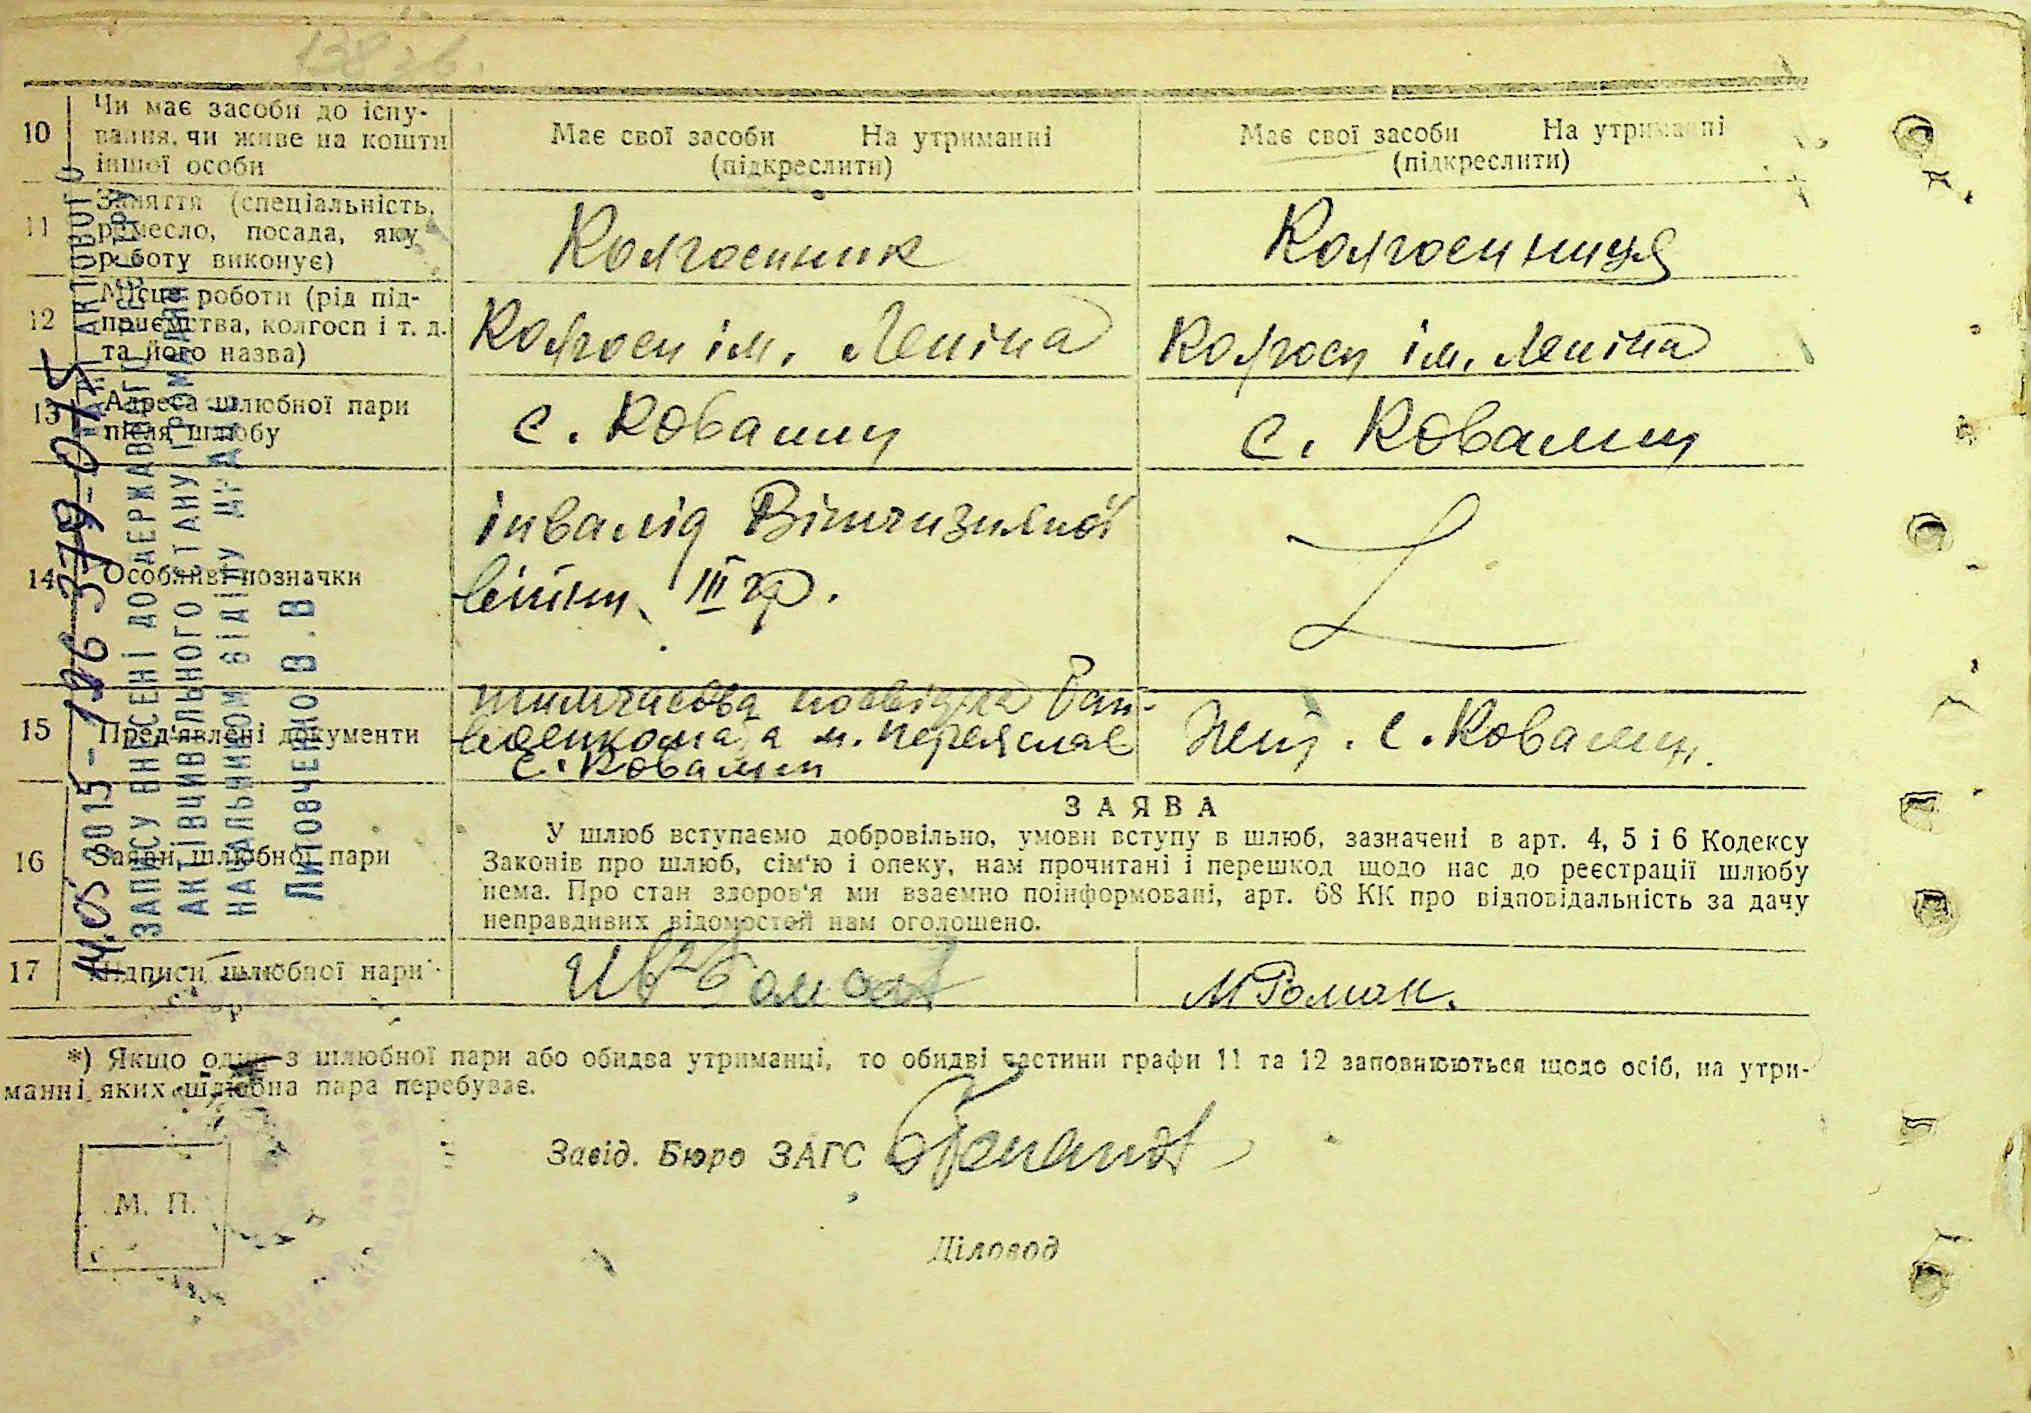 10 Чи має засоби до існу-
вання, чи живе на кошти
іншої особи
Має свої засоби На утриманні
(підкреслити)
Має свої засоби На утриманні
(підкреслити)
11 Заняття (спеціальність,
ремесло, посада, яку
роботу виконує)
Колгоспник
Колгоспниця
12 Місце роботи (рід під-
приємства, колгосп і т. д.
та його назва)
Колгосп ім. Леніна
Колгосп ім. Леніна
13 Адреса шлюбної пари
після шлюбу
с. Ковалин
с. Ковалин
14 Особливі позначки
інвалід Вітчизняної
війни III гр.
15 Пред'явлені документи
тимчасова посвідка Рай-
воєнкомата м. Переяслав
с. Ковалин
с. Ковалин.
16 Заяви шлюбної пари
ЗАЯВА
У шлюб вступаємо добровільно, умови вступу в шлюб, зазначені в арт. 4, 5 і 6 Кодексу
Законів про шлюб, сім'ю і опеку, нам прочитані і перешкод щодо нас до реєстрації шлюбу
нема. Про стан здоров'я ми взаємно поінформовані, арт. 68 КК про відповідальність за дачу
неправдивих відомостей нам оголошено.
17 Підписи шлюбної пари
М Роман.
*) Якщо один з шлюбної пари або обидва утриманці, то обидві частини графи 11 та 12 заповнюються щодо осіб, на утри-
манні яких шлюбна пара перебуває.
Завід. Бюро ЗАГС
М. П.
Діловод
ЗАПИСУ ВНЕСЕНІ ДО ДЕРЖАВНОГО РЕЄСТРУ
АКТІВ ЦИВІЛЬНОГО СТАНУ ГРОМАДЯН
НАЧАЛЬНИКОМ ВІДІЛУ
Литовченко В.В